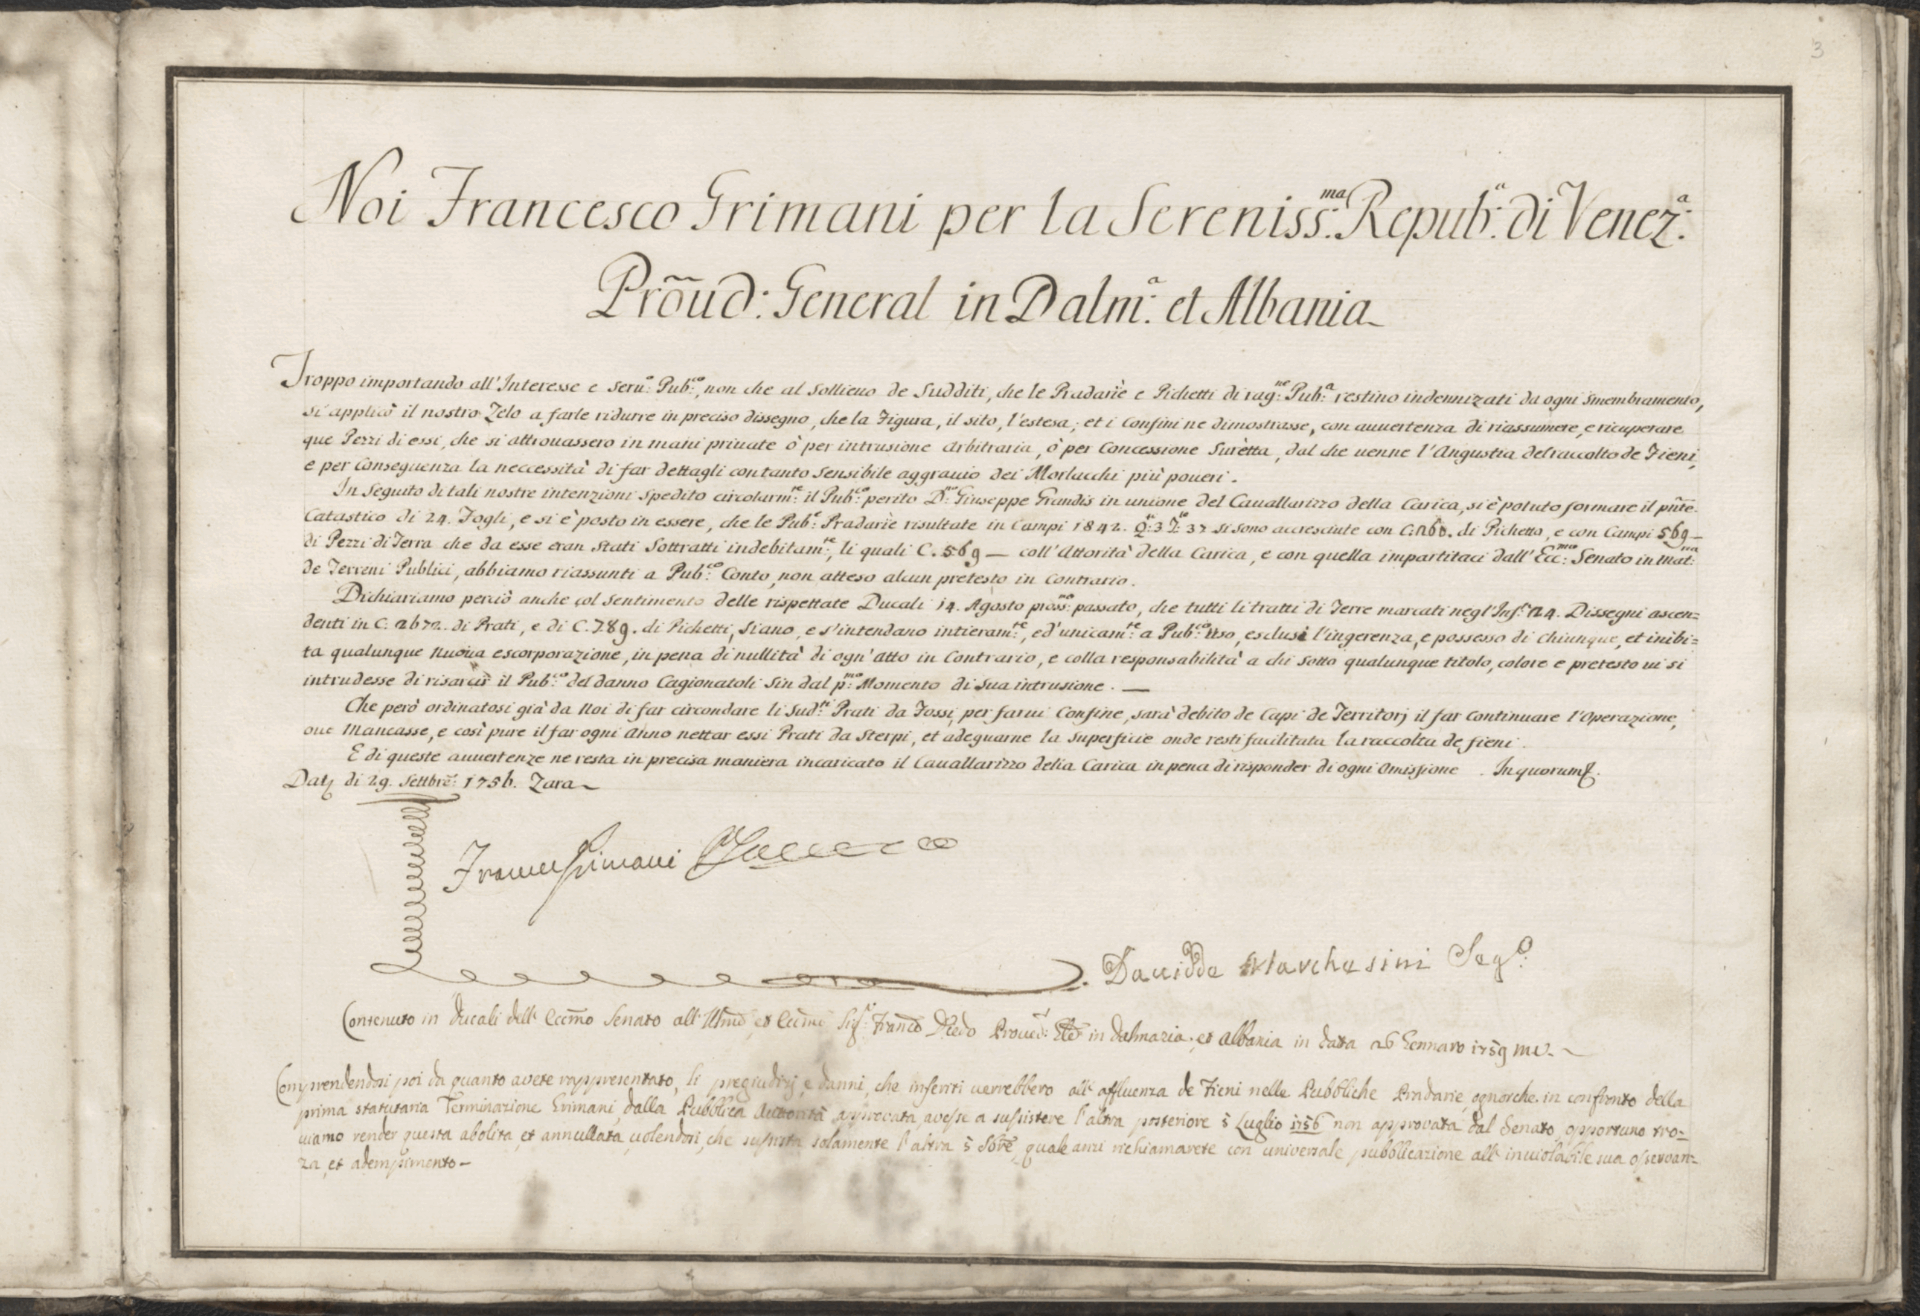 3
Noi Francesco Grimani per la Sereniss:ma Repub:a di Venez:a
Prõud: General in Dalm:a et Albania
Troppo importando all'Interesse e seru:o Pub:co, non che al sollieuo de Sudditi, che le Pradarie e Pichetti di rag:ne Pub:a restino indennizati da ogni smembramento,
si applicò il nostro Zelo a farle ridurre in preciso dissegno, che la Figura, il sito, l'estesa, et i Confini ne dimostrasse, con auuertenza di riassumere, e ricuperare
que Pezzi di essi, che si attrouassero in mani priuate ò per intrusione arbitraria, ò per Concessione Surètta, dal che uenne l'Angustia del raccolto de Fieni,
e per Conseguenza la neccessità di far dettagli con tanto Sensibile aggrauio dei Morlacchi più poueri.
In Seguito di tali nostre intenzioni Spedito circolarm:te il Pub:co perito D:no Giuseppe Grandis in unione del Cauallarizzo della Carica, si è potuto formare il pñte
Catastico di 24. Fogli, e si è posto in essere, che le Pub:e Pradarie risultate in Campi 1842. Q:3 T:e 37 si sono accresciute con C:260. di Pichetto, e con Campi 569 —
di Pezzi di Terra che da esse eran stati Sottratti indebitam:te, li quali C. 569 — coll'Attorità della Carica, e con quella impartitaci dall'Ecc:mo Senato in mat:ria
de Terreni Publici, abbiamo riassunti a Pub:co Conto, non atteso alcun pretesto in Contrario.
Dichiariamo perciò anche col Sentimento delle rispettate Ducali 14. Agosto pross:mo passato, che tutti li tratti di Terre marcati negl'Inf:ti 24. Dissegni ascen=
denti in C. 2672. di Prati, e di C. 789. di Pichetti, Siano, e s'intendano intieram:te, ed'unicam:te a Pub:co uso, esclusi l'ingerenza, e possesso di chiunque, et inibi=
ta qualunque nuoua escorporazione, in pena di nullità di ogn'atto in Contrario, e colla responsabilità a chi sotto qualunque titolo, colore e pretesto ui si
intrudesse di risarcir il Pub:co del danno Cagionatoli Sin dal p:mo Momento di Sua intrusione. —
Che però ordinatosi già da Noi di far circondare li sud:ti Prati da Fossi, per farui Confine, sarà debito de Capi de Territorj il far continuare l'Operazione,
oue Mancasse, e così pure il far ogni Anno nettar essi Prati da Sterpi, et adeguarne la superficie onde resti facilitata la raccolta de fieni.
E di queste auuertenze ne resta in precisa maniera incaricato il Cauallarizzo della Carica in pena di risponder di ogni Omissione. In quorum
Dat di 29. Settbrẽ: 1756. Zara
Grimani
Dauidde Marchesini Seg:o
Contenuto in Ducali dell'Eccmo Senato all'Illmo, et Eccmo Sig:r Franco Diedo Proued: Gñle in Dalmazia, et Albania in data 26 Gennaro 1759 m.v.
Comprendendosi poi da quanto avete rappresentato, li pregiudizj, e danni, che inferiti verrebbero all'affluenza de Fieni nelle Pubbliche Pradarie, ognorche in confronto della
prima statutaria Terminazione Grimani, dalla Pubblica Autorità approvata, avesse a sussistere l'altra posteriore 5 Luglio 1756 non approvata dal Senato, opportuno tro=
viamo render questa abolita, et annullata, volendosi, che sussista solamente l'altra, quale anzi richiamarete con universale pubblicazione all'inviolabile sua osservan=
za, et adempimento —